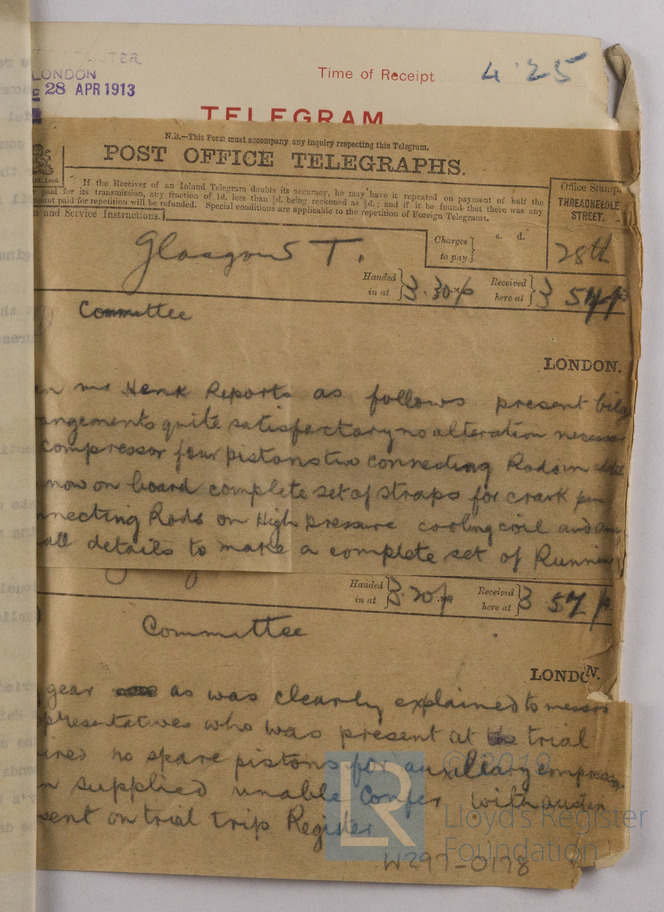 LONDON
28 APR 1913
Time of Receipt
4.25
TELEGRAM
N.B.—This Form must accompany any inquiry respecting this Telegram.
POST OFFICE TELEGRAPHS.
If the Receiver of an Inland Telegram doubts its accuracy, he may have it repeated on payment of half the
paid for its transmission, any fraction of 1d. less than ½d. being reckoned as ½d.; and if it be found that there was any
amount paid for repetition will be refunded. Special conditions are applicable to the repetition of Foreign Telegrams.
and Service Instructions.
Charges to pay
s. d.
Office Stamp.
THREADNEEDLE
STREET.
28th
Glasgow S T.
Handed in at 3.30 p
Received here at
Committee
LONDON.
mr Henk Reports as follows present bilg
angements quite satisfactory no alteration necessar
compressor four pistons two connecting Rods
now on board complete set of straps for crank pin
nnecting Rods on High pressure cooling coil and
all details to make a complete set of Runnin
Handed in at
Received here at
Committee
LONDON.
gear as was clearly explained to messrs
presentatives who was present at trial
ired no spare pistons for auxiliary compressor
n supplied unable confer with austin
sent on trial trip Register
© 2019
LR
Lloyd's Register
Foundation
W297-0178